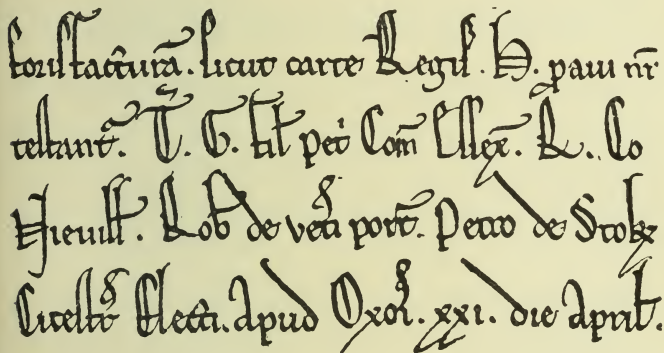 foris factura. sicut carte Regis. H. p̱aui nr̄i
testant̃. T̃. G. fił pet̉ Com̃ Essex̃. R. Co
Neuilł. Rob̃ de vet̃i port̃. Petro de Stokes
Cicestr̃ Elect̃i. Apud Oxon̉. xxi. die April̃.